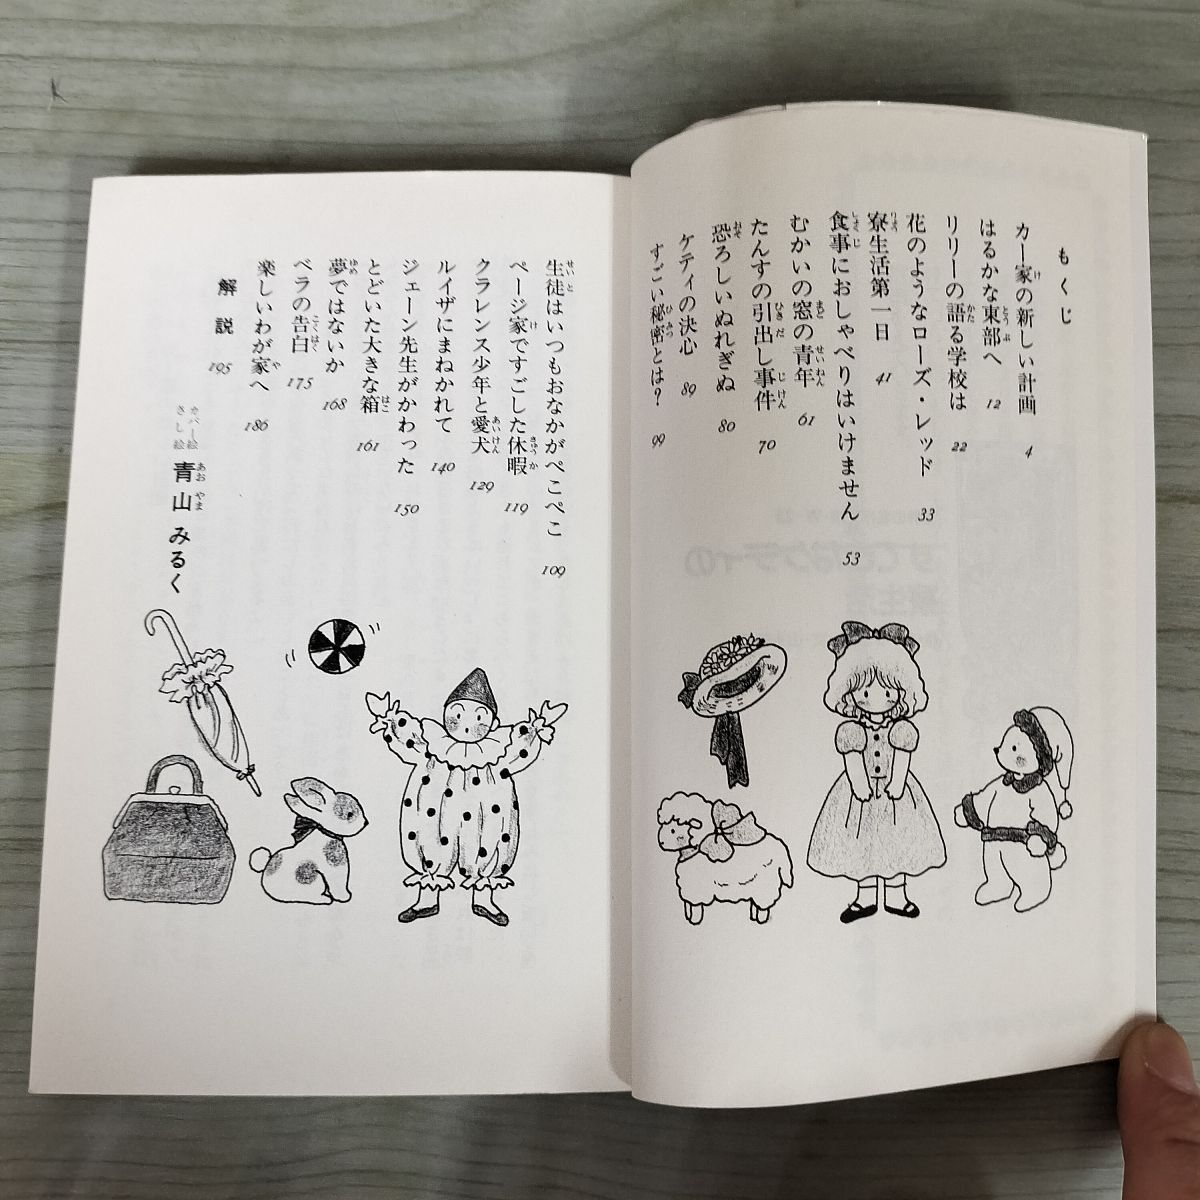 もくじ
カー家の新しい計画 4
はるかな東部へ 12
リリーの語る学校は 22
花のようなローズ・レッド 33
寮生活第一日 41
食事におしゃべりはいけません 53
むかいの窓の青年 61
たんすの引出し事件 70
恐ろしいぬれぎぬ 80
ケティの決心 89
すごい秘密とは？ 99
生徒はいつもおなかがぺこぺこ 109
ページ家ですごした休暇 119
クラレンス少年と愛犬 129
ルイザにまねかれて 140
ジェーン先生がかわった 150
とどいた大きな箱 161
夢ではないか 168
ベラの告白 175
楽しいわが家へ 186
解説 195
カバー絵
さし絵
青山みるく